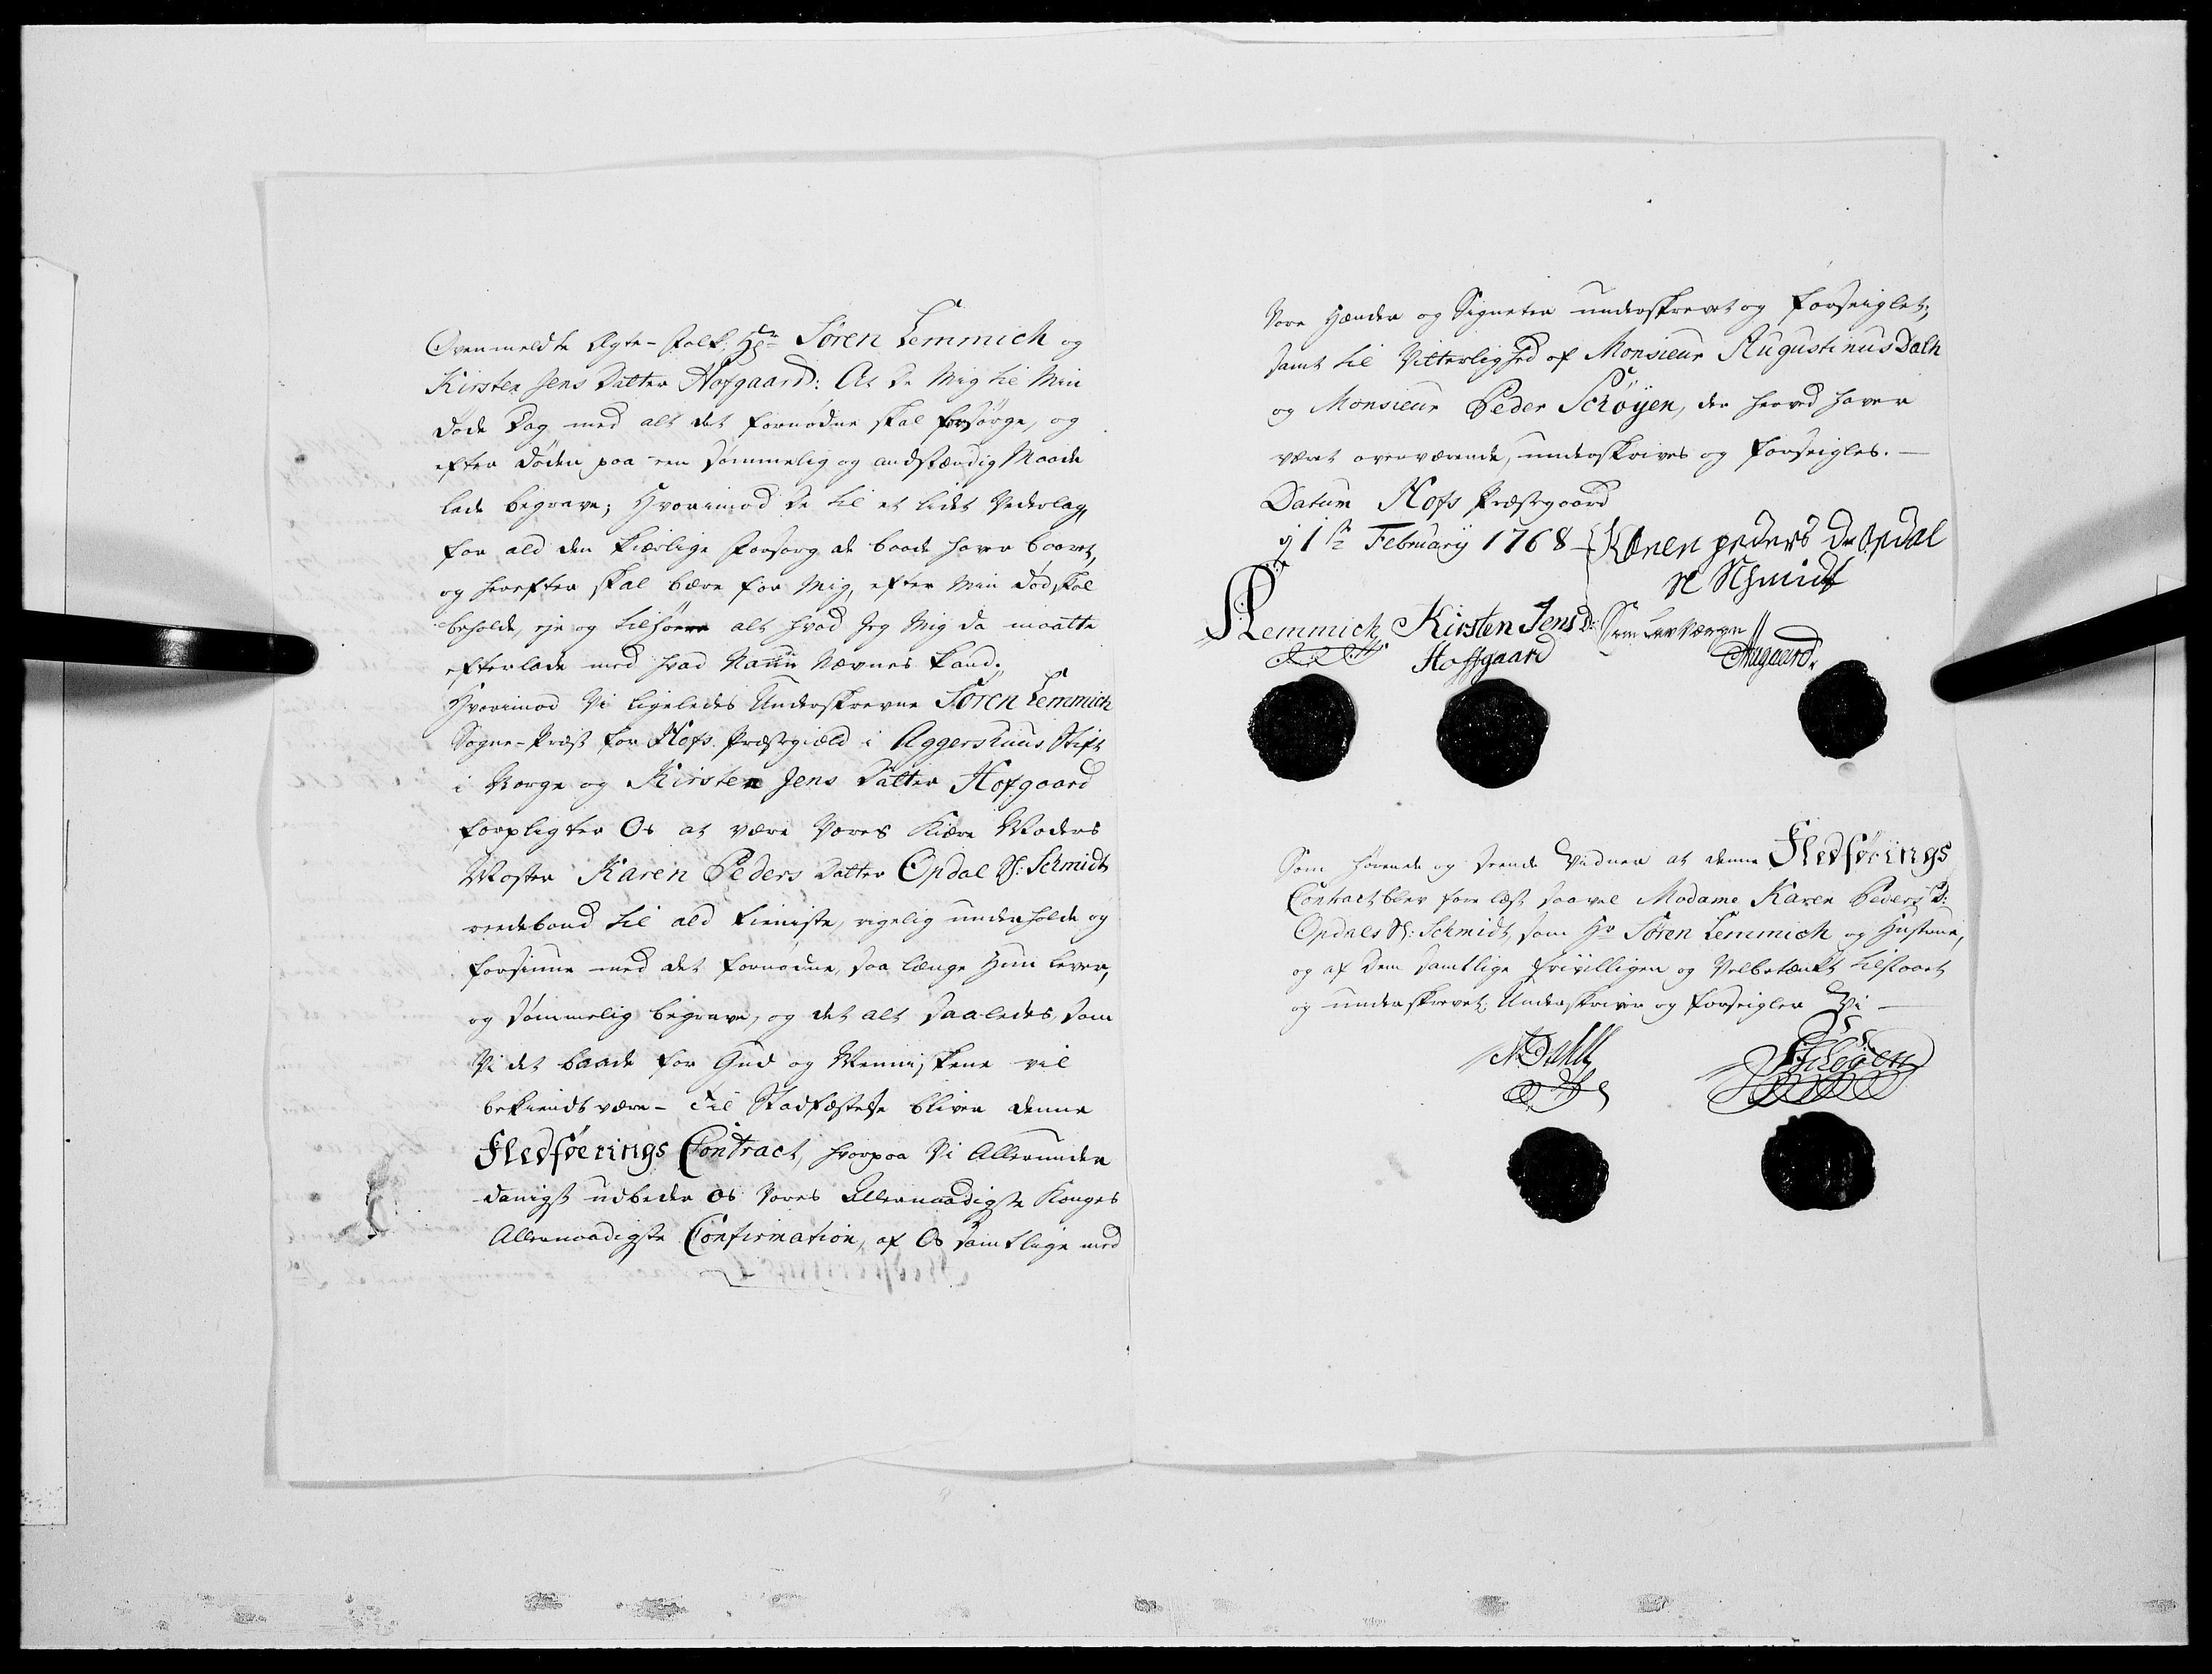 Ovenmeldte Ægte-Folk: Hr Søren Lemmich og
Kirsten Jens Datter Hofgaard: At De Mig til Min
Døde Dag med alt det fornødne skal forsørge, og
efter Døden paa een sømmelig og anstændig Maade
lade begrave; Hvorimod De til et lidet Vederlag
for ald den kiærlige Forsorg de baade haver baaret,
og herefter skal bære for Mig, efter Min Død skal
beholde, eje og tilhøre alt hvad Jeg Mig da maatte
efterlade med hvad Navn Nævnes kand;
Hvorimod Vi ligeledes Underskrevne Søren Lemmich
Sogne-Præst for Hofs Præstegield i Aggershuus Stift
i Norge og Kirsten Jens Datter Hofgaard
forpligter Os at være Vores Kiære Moders
Moster Karen Peders Datter Opdal Sl: Schmidts
reedebond til ald tieniste, rigelig underholde og
forsiune med det fornødne, saa længe Hun lever,
og sømmelig begrave, og det alt saaledes, som
Vi det baade for Gud og Menniskene vil
bekiendt være - Til Stadfæstelse bliver denne
Fledføerings Contract, hvorpaa Vi Allerunder
danigst udbeder os Vores Allernaadigste Konges
Allernaadigste Confirmation, af Os samtlige med
Vore Hænder og Signeter underskrevet og forseiglet;
samt til Vitterlighed af Monsieur Augustinus Dalh
og Monsieur Peder Schøyen, der herved haver
været overværende, underskrives og forseigles. -
Datum Hofs Præstegaard
d 1ste February 1768 - Karen peders Dr Opdal
Sl Schmidt
SLemmich Kirsten Jens D: Som Lav Værge
Hoffgaard Aagaard
Som hørende og seende Vidner at denne Fledførings
Contract blev forelæst saavel Madame Karen Peders D:
Opdals Sl: Schmidt, som Hr Søren Lemmich og Hustrue,
og af dem samtlige frivilligen og Velbetænkt tilstaaet
og underskrevet; Underskriver og forseigler Vi -
ADahll PSchøyen